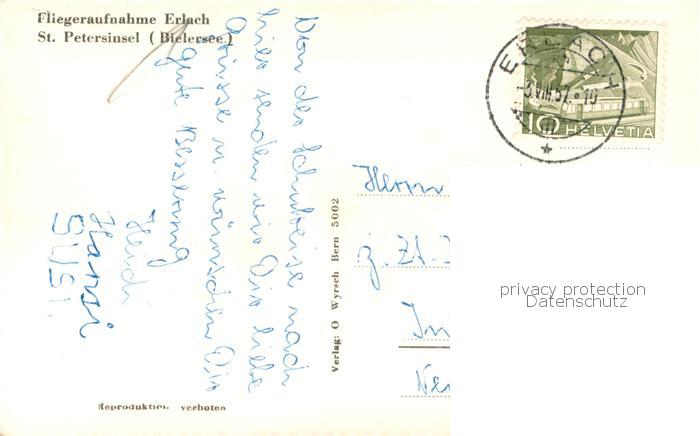 Fliegeraufnahme Erlach
St. Petersinsel (Bielersee)
Von der Schulreise nach
hier senden wir Dir liebe
Grüsse u. wünschen Dir
gute Besserung
Heidi
Hansi
SUSI
Verlag: O Wyrsch Bern 5002
Reproduktion verboten
ERLACH
-3.VIII.57.-10
10 HELVETIA
Herrn
z. Zt.
privacy protection
Datenschutz